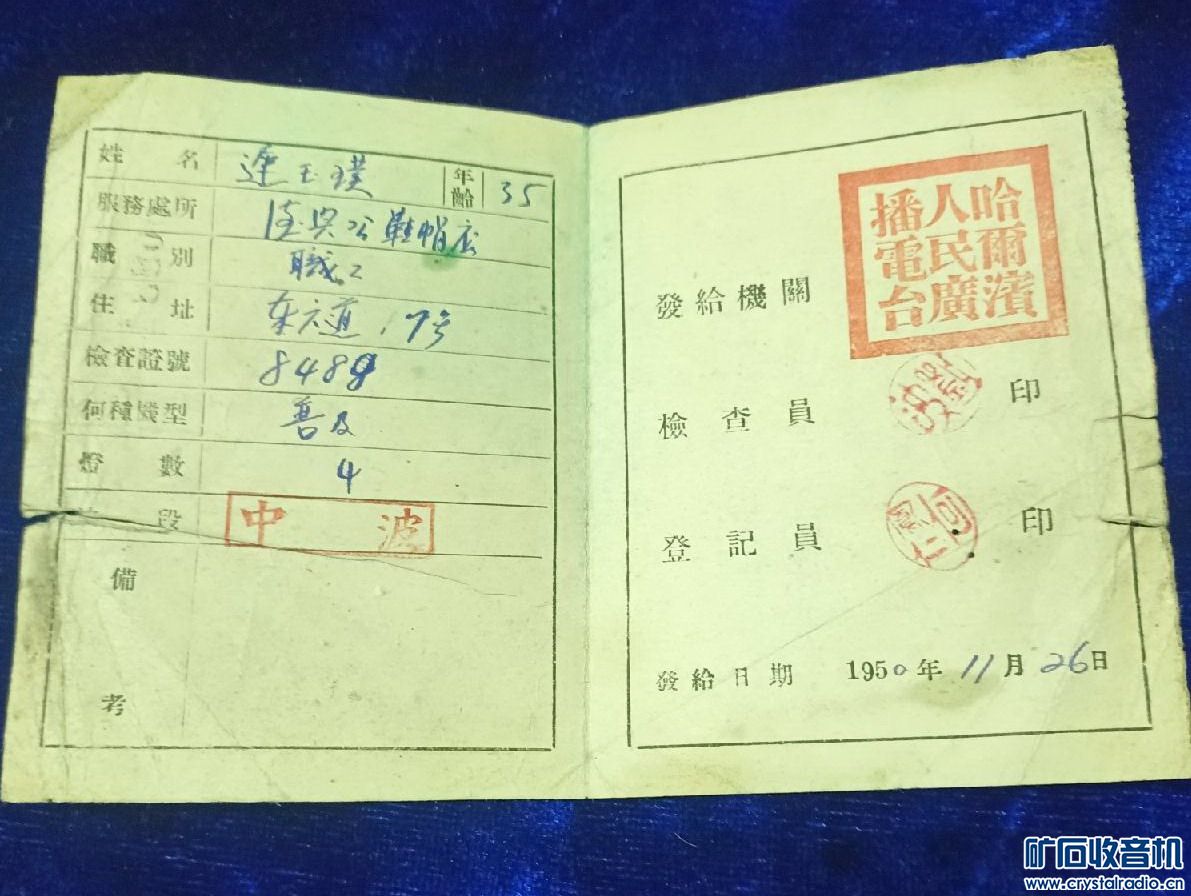 姓名 連玉璞 年齡 35
服務處所 德興公鞋帽店
職別 職工
住址 东六道，7号
檢查證號 8489
何種機型 普及
燈數 4
段 中波
備考
哈爾濱人民廣播電台
發給機關
檢查員 印
登記員 印
發給日期 1950年11月26日
矿石收音机
www.crystalradio.cn